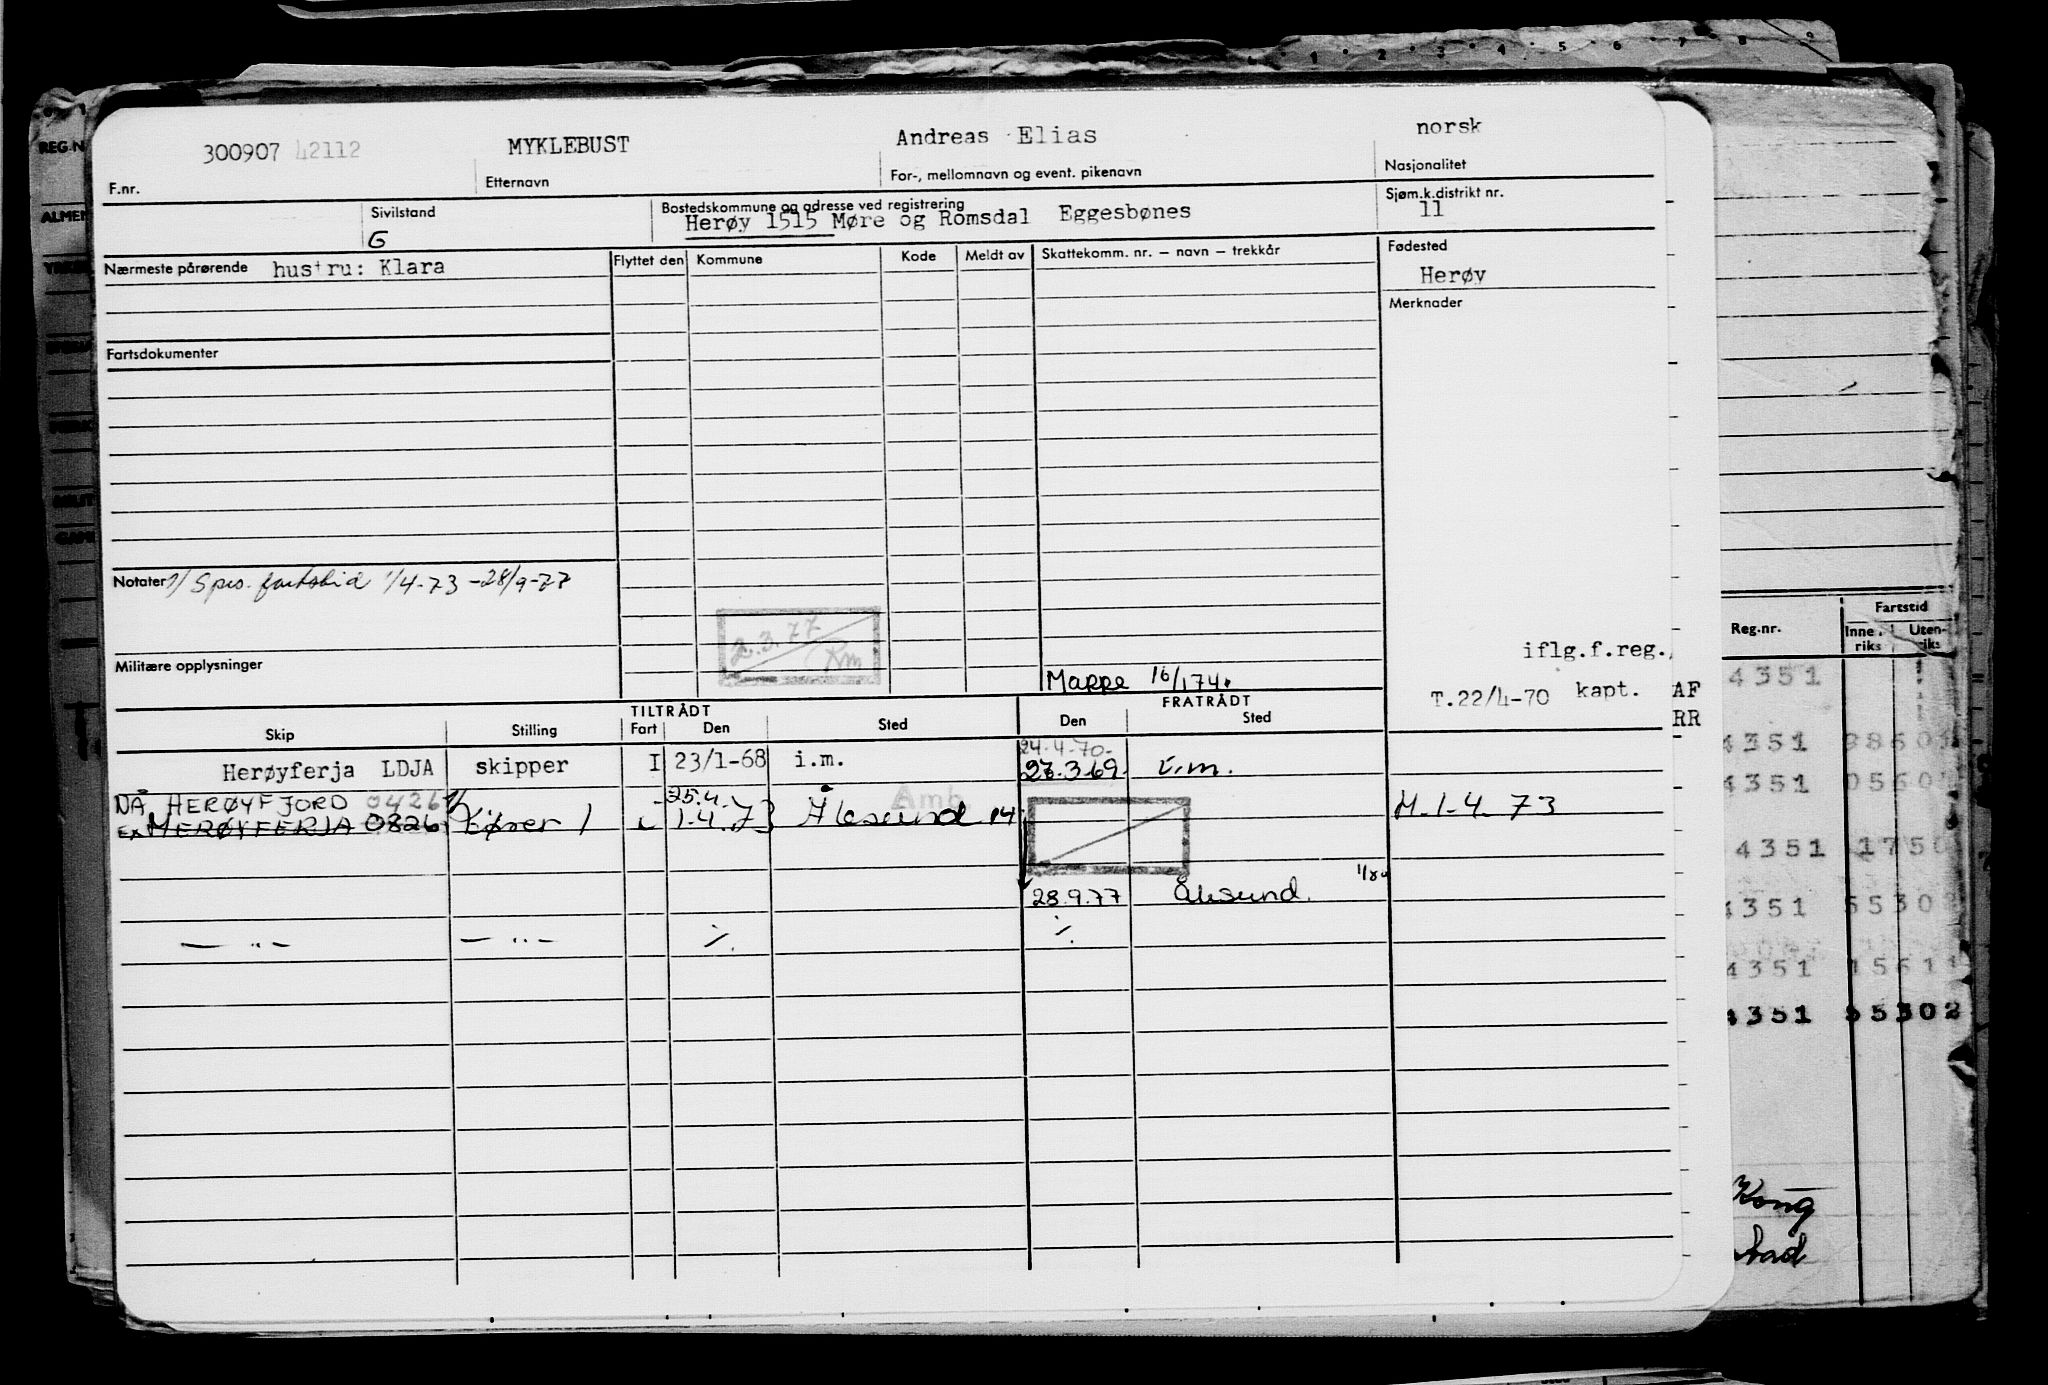 1 2 3 4 5 6 7 8 9
300907 42112 MYKLEBUST Andreas Elias norsk
F.nr. Etternavn For-, mellomnavn og event. pikenavn Nasjonalitet
Sivilstand Bostedskommune og adresse ved registrering Sjøm.k.distrikt nr.
G Herøy 1515 Møre og Romsdal Eggesbønes 11
Nærmeste pårørende hustru: Klara Flyttet den Kommune Kode Meldt av Skattekomm. nr. — navn — trekkår Fødested
Herøy
Merknader
Fartsdokumenter
Notater 1/4-73 -28/9-77
2.3.77
Militære opplysninger
iflg.f.reg.
Mappe 16/174.
T.22/4-70 kapt.
AF
RR
TILTRÅDT FRATRÅDT
Skip Stilling Fart Den Sted Den Sted
24.4.70.
Herøyferja LDJA skipper I 23/1-68 i.m. 23.3.69. i.m.
NÅ HERØYFJORD 0426 25.4. Amb.
EX HERØYFERJA 0826 1.4.73 Ålesund 14 M.1-4.73
1/80
28.9.77 Ålesund.
— " — — " — ./. ./.
REG.N
ALMEN
Reg.nr. Fartstid
Inne-riks Uten-riks
4351
4351 98601
4351 0560
4351 1750
4351 5530
4351 1561
4351 55302
Kong